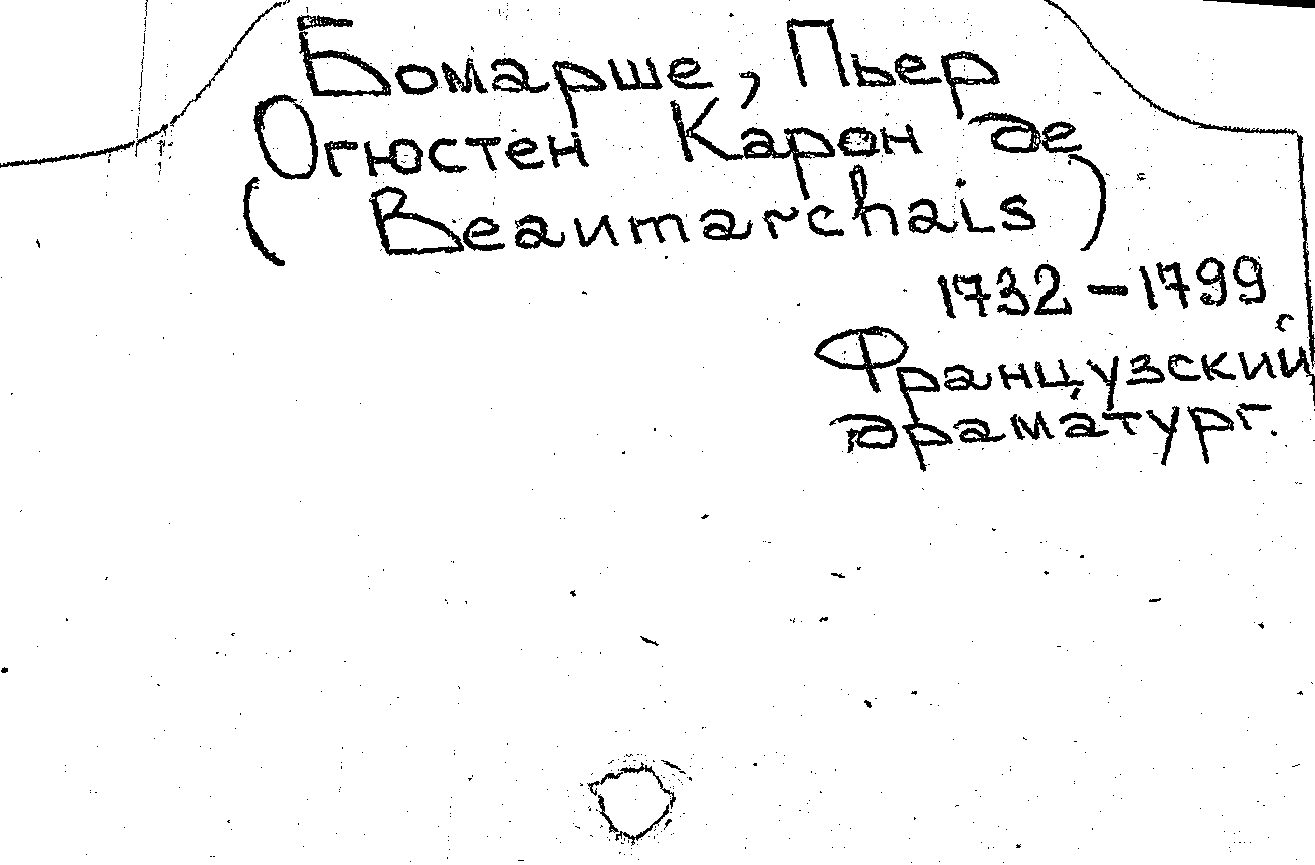 Бомарше, Пьер
Огюстен Карон де
(Beaumarchais)
1732-1799
Французский
драматург.